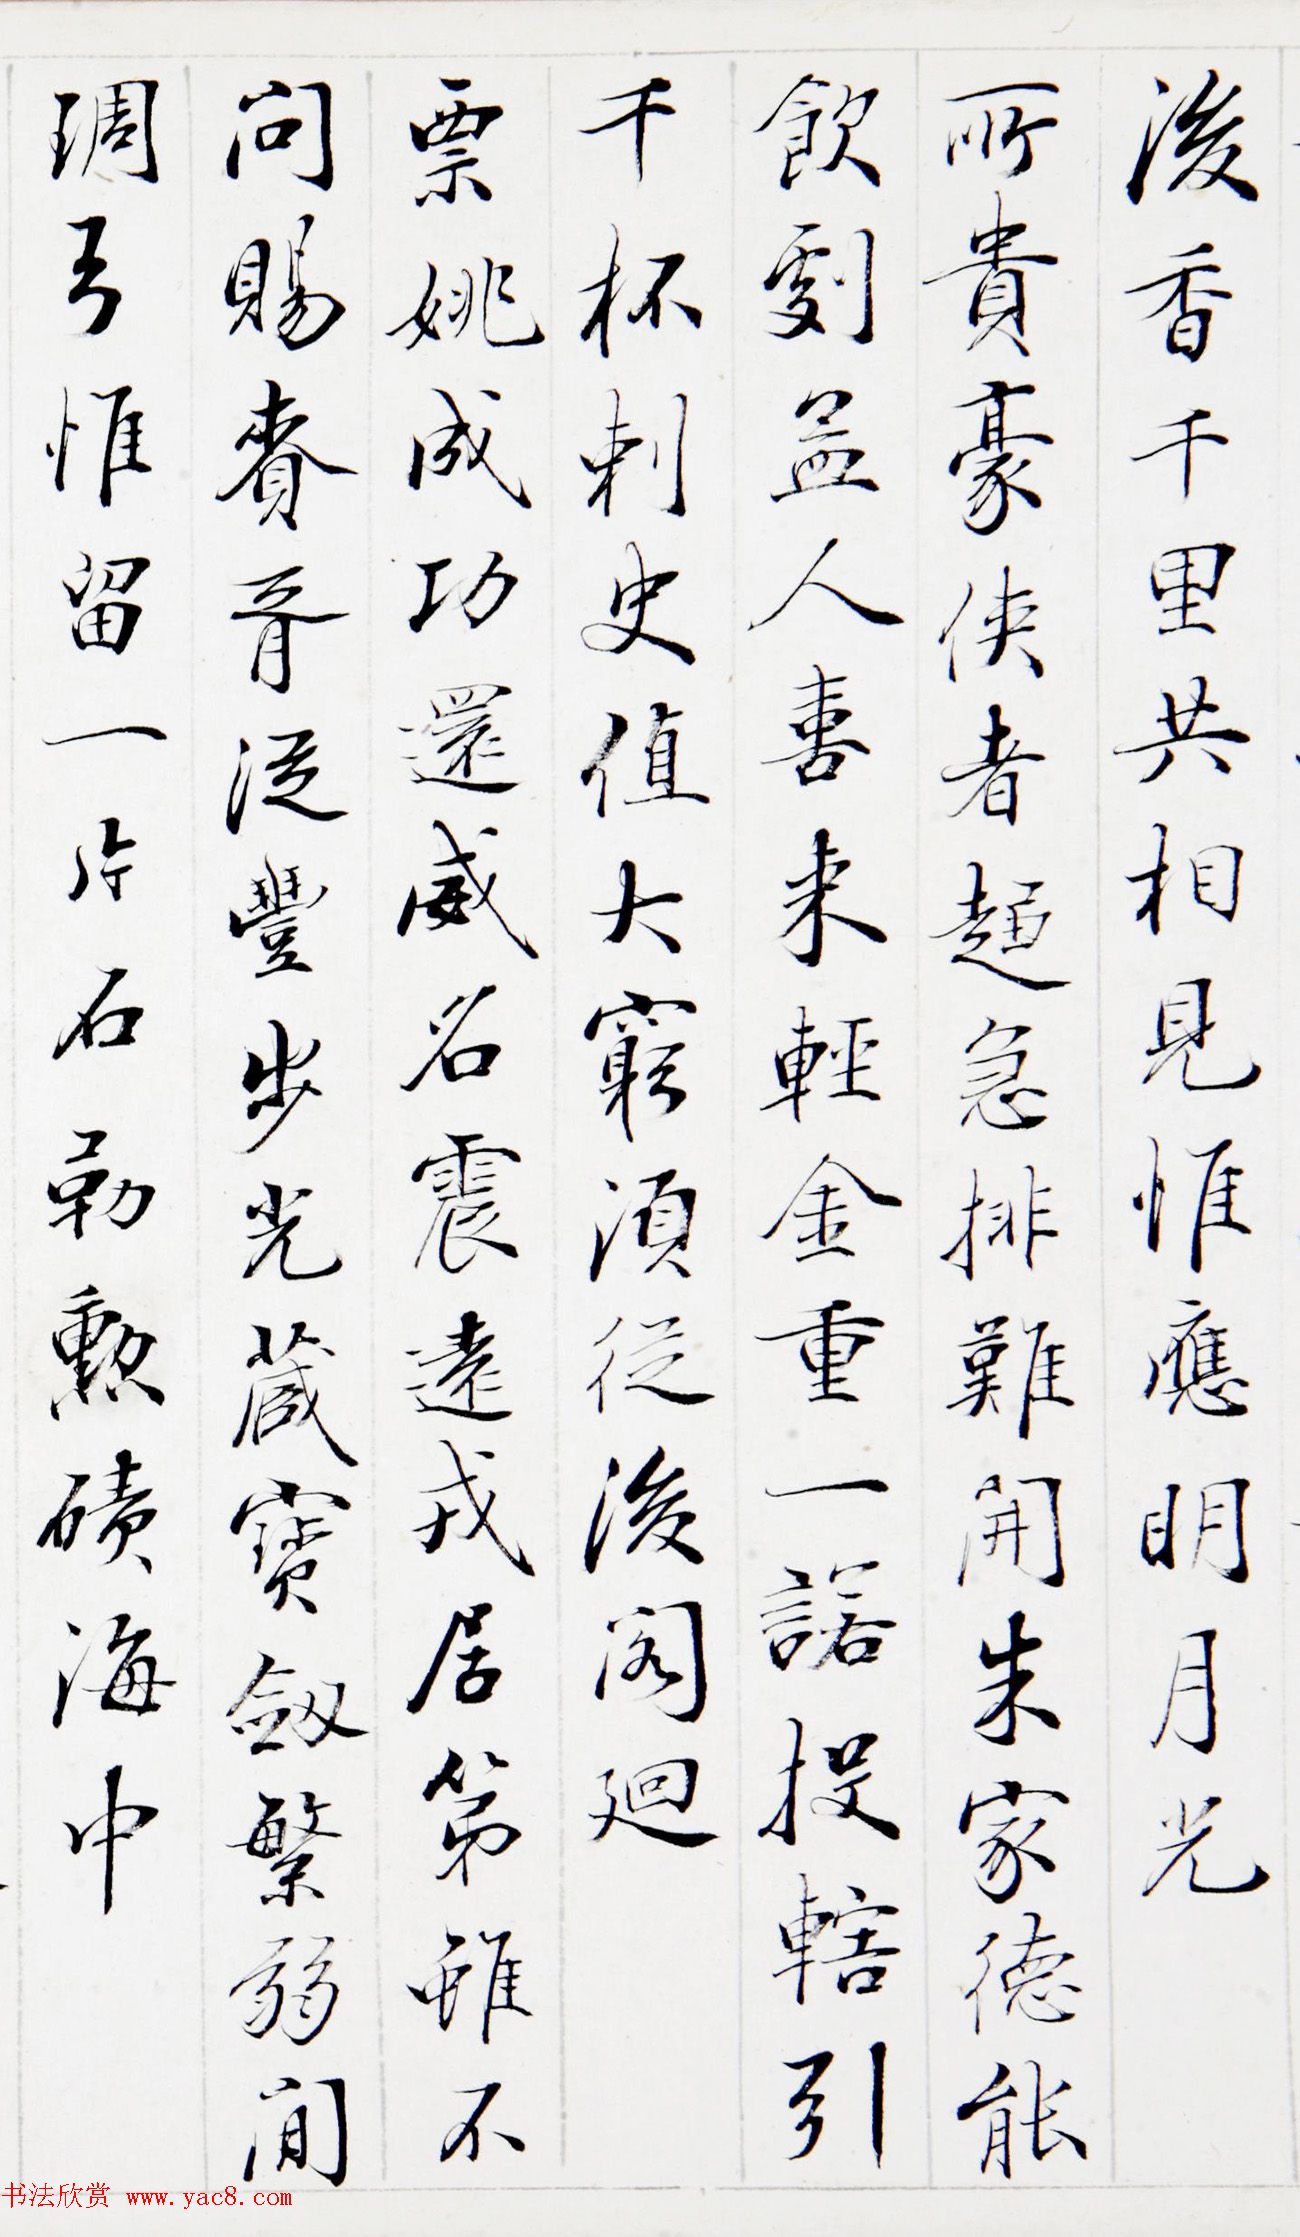 後香千里共相見惟應明月光
所貴豪俠者趨急排難開朱家德能
飲劇孟人喜來輕金重一諾投轄引
千杯刺史值大窮須從後閣廻
票姚成功還威名震遠戎居第雖不
問賜賚音從豐步光藏寶劔繁弱閒
琱弓惟留一片石勒勲磧海中
书法欣赏 www.yac8.com